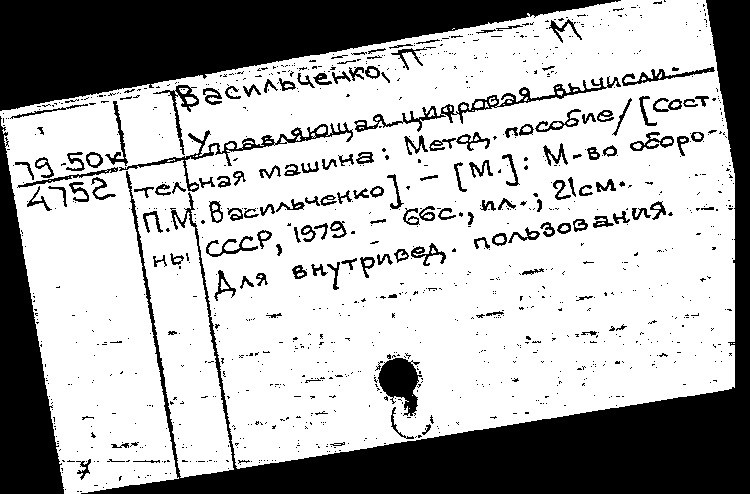 Васильченко, П М
Управляющая цифровая вычисли-
79-50к
4752
тельная машина: Метод. пособие/[Сост.
П.М. Васильченко]. — [М.]: М-во оборо-
ны СССР, 1979. — 66с., ил.; 21см.
Для внутривед. пользования.